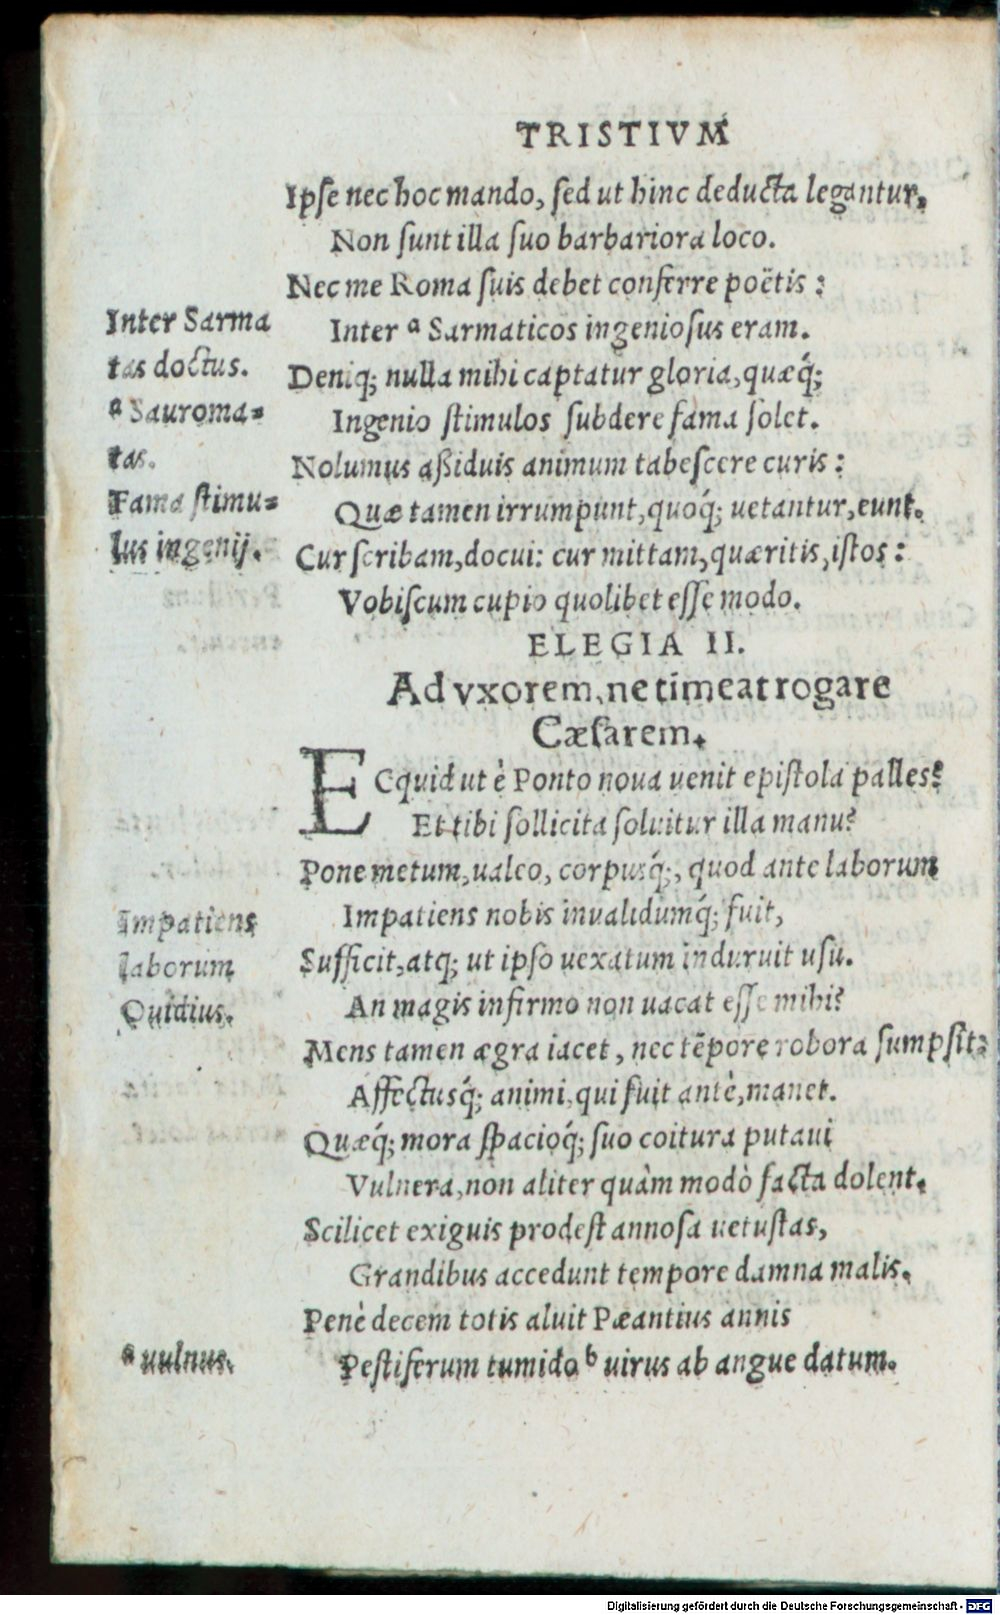 TRISTIVM
Ipſe nec hoc mando, ſed ut hinc deducta legantur,
Non ſunt illa ſuo barbariora loco.
Nec me Roma ſuis debet conferre poëtis:
Inter ᵃ Sarmaticos ingenioſus eram.
Deniq; nulla mihi captatur gloria, quæq́;
Ingenio ſtimulos ſubdere fama ſolet.
Nolumus aßiduis animum tabeſcere curis:
Quæ tamen irrumpunt, quoq́; uetantur, eunt.
Cur ſcribam, docui: cur mittam, quæritis, iſtos:
Vobiſcum cupio quolibet eſſe modo.
Inter Sarma
tas doctus.
ᵃ Sauroma=
tas.
Fama ſtimu=
lus ingenij.
ELEGIA II.
Ad vxorem, ne timeat rogare
Cæſarem.
ECquid ut è Ponto noua uenit epiſtola palles?
Et tibi ſollicita ſoluitur illa manu?
Pone metum, ualeo, corpusq́;, quod ante laborum
Impatiens nobis inualidumq́; fuit,
Sufficit, atq; ut ipſo uexatum induruit uſu.
An magis infirmo non uacat eſſe mihi?
Mens tamen ægra iacet, nec tẽpore robora ſumpſit:
Affectusq́; animi, qui fuit antè, manet.
Quæq́; mora ſpacioq́; ſuo coitura putaui
Vulnera, non aliter quàm modò facta dolent.
Scilicet exiguis prodeſt annoſa uetuſtas,
Grandibus accedunt tempore damna malis.
Penè decem totis aluit Pæantius annis
Peſtiferum tumido ᵇ uirus ab angue datum.
Impatiens
laborum
Ouidius.
ᵃ uulnus.
Digitalisierung gefördert durch die Deutsche Forschungsgemeinschaft - DFG